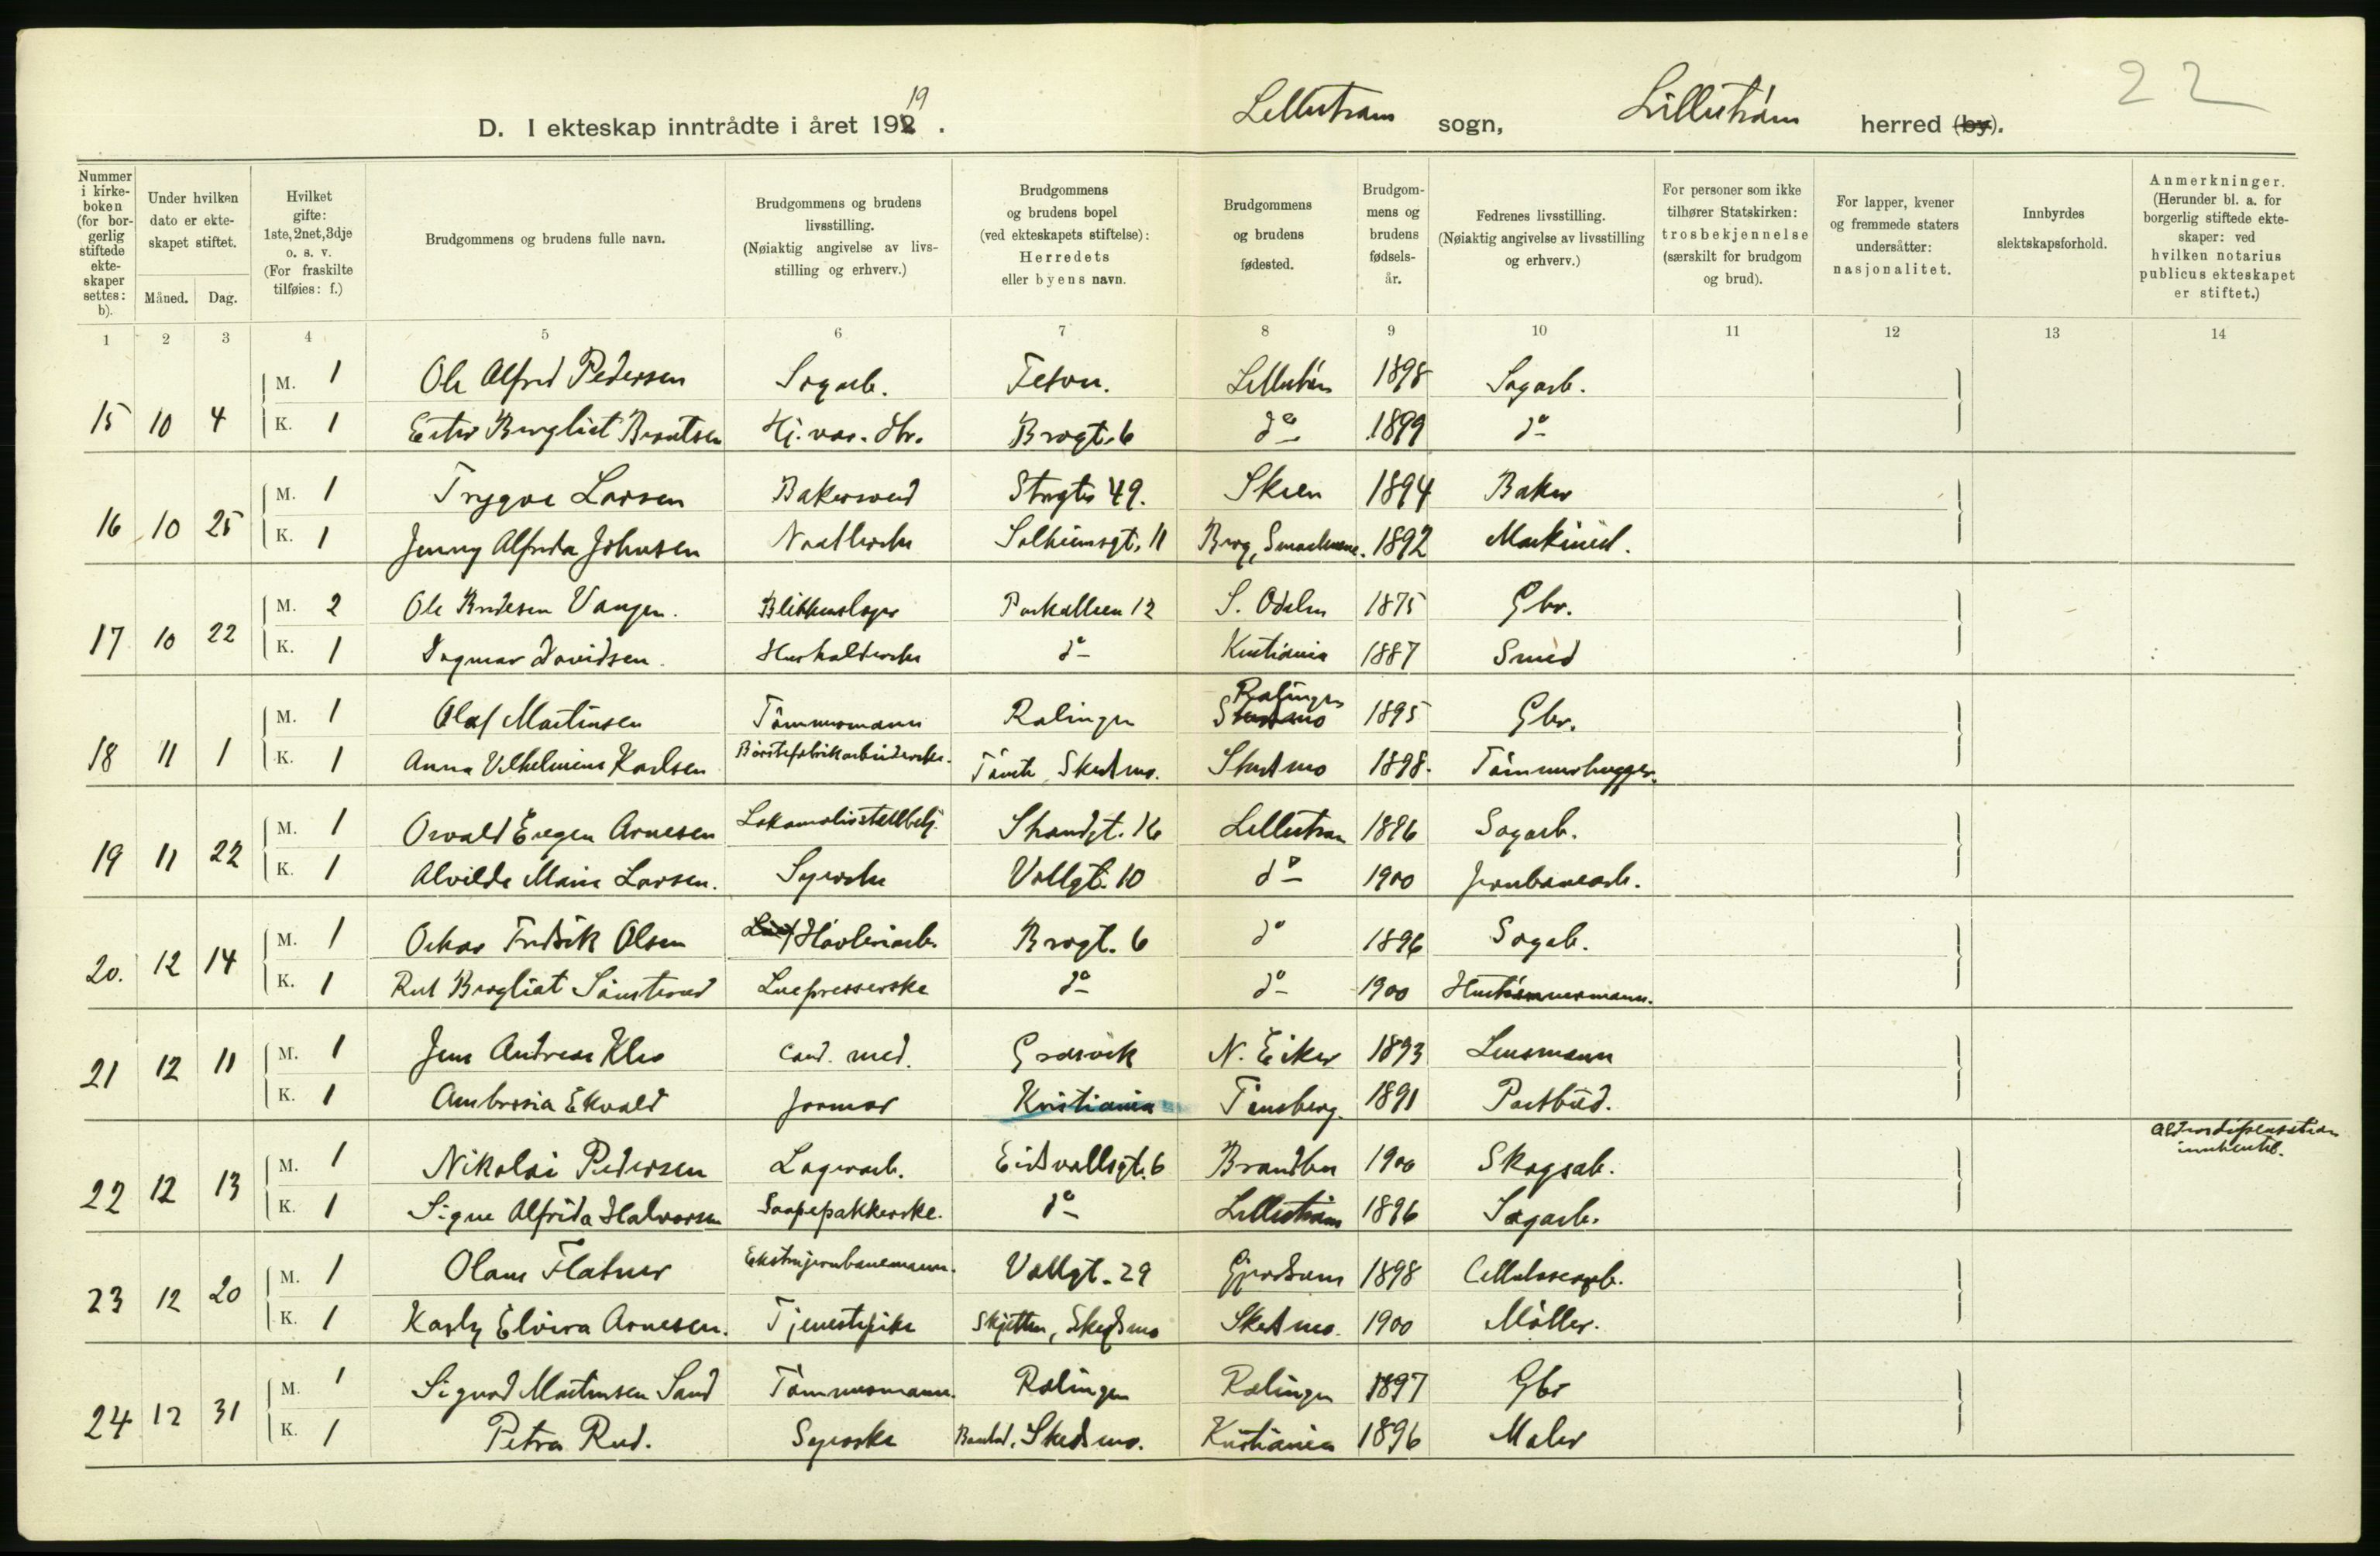 22
D. I ekteskap inntrådte i året 192 19 . Lillestrøm sogn, Lillestrøm herred (by).
Nummer i kirkeboken (for borgerlig stiftede ekteskaper settes: b).
Under hvilken dato er ekteskapet stiftet.
Måned. Dag.
Hvilket gifte: 1ste, 2net, 3dje o. s. v. (For fraskilte tilføies: f.)
Brudgommens og brudens fulle navn.
Brudgommens og brudens livsstilling. (Nøiaktig angivelse av livsstilling og erhverv.)
Brudgommens og brudens bopel (ved ekteskapets stiftelse): Herredets eller byens navn.
Brudgommens og brudens fødested.
Brudgommens og brudens fødselsår.
Fedrenes livsstilling. (Nøiaktig angivelse av livsstilling og erhverv.)
For personer som ikke tilhører Statskirken: trosbekjennelse (særskilt for brudgom og brud).
For lapper, kvener og fremmede staters undersåtter: nasjonalitet.
Innbyrdes slektskapsforhold.
Anmerkninger. (Herunder bl. a. for borgerlig stiftede ekteskaper: ved hvilken notarius publicus ekteskapet er stiftet.)
1 2 3 4 5 6 7 8 9 10 11 12 13 14
M. 1 Ole Alfred Pedersen Sagarb. Lillestrøm 1898 Sagarb.
15 10 4 K. 1 Ester Bergliot Berntsen Hj. vær. dtr. Brogt. 6 do 1899 do
M. 1 Trygve Larsen Bakersvend Storgt. 49. Skien 1894 Baker
16 10 25 K. 1 Jenny Alfrida Johnsen Solheimsgt. 11 Berg, Smaalenene. 1892 Maskinist.
M. 2 Ole Vangen. Blikkenslager Parkalleen 12 S. Odalen 1875 Gbr.
17 10 22 K. 1 Dagmar Davidsen. Husholderske do Kristiania 1887 Smed
M. 1 Olaf Martinsen Tømmermann Rælingen Rælingen 1895 Gbr.
18 11 1 K. 1 Anna Vilhelmine Karlsen Børstefabrikarbeiderske. Tømte, Skedsmo. Skedsmo 1898. Tømmerhugger.
M. 1 Osvald Eugen Arnesen Lokomotivstallbetj. Strandgt. 16 Lillestrøm 1896 Sagarb.
19 11 22 K. 1 Alvilde Marie Larsen. Syerske Vollgt. 10 do 1900 Jernbanearb.
M. 1 Oskar Fredrik Olsen Høvleriarb. Brogt. 6 do 1896 Sagarb.
20. 12 14 K. 1 Rut Bergliot Sønsterud Luepresserske do do 1900 Hustømmermann.
M. 1 Jens Andreas Klev cand. med. Gravvik N. Eiker 1893 Lensmann
21 12 11 K. 1 Ambrosia Ekvald Jormor Kristiania Tønsberg. 1891 Postbud.
M. 1 Nikolai Pedersen Lagerarb. Eidsvollsgt. 6 Brandbu 1900 Skogsarb. Aldersdispensation innhentet.
22 12 13 K. 1 Signe Alfrida Halvorsen Saapepakkerske. do Lillestrøm 1896 Sagarb.
M. 1 Olam Flatner Ekstrajernbanemann. Vollgt. 29 Gjerdrum 1898 Cellulosearb.
23 12 20 K. 1 Karly Elvira Arnesen. Tjenestepike Skjetten, Skedsmo Skedsmo. 1900 Møller.
M. 1 Sigurd Martinsen Sand Tømmermann. Rælingen Rælingen 1897 Gbr
24 12 31 K. 1 Petra Rud. Syerske Skedsmo. Kristiania 1896 Maler